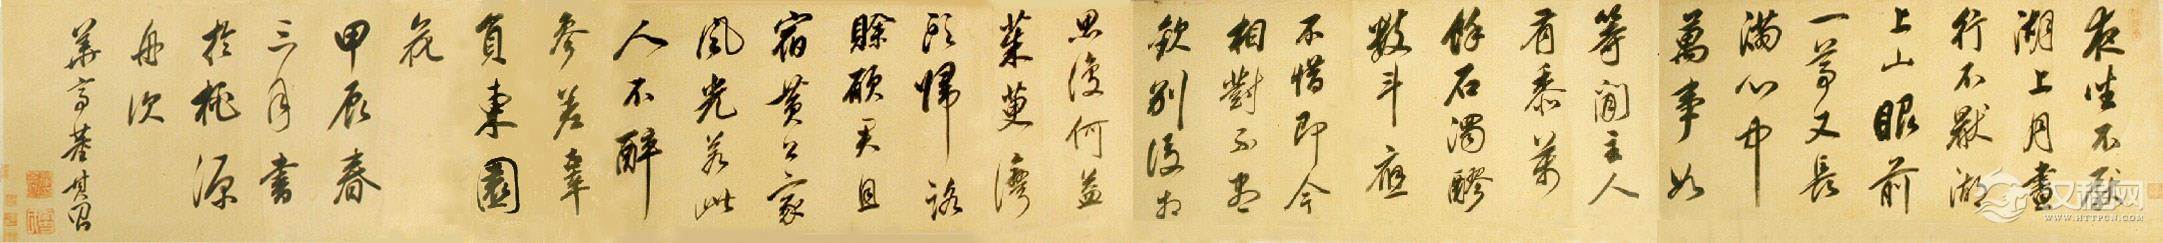 夜坐不厭
湖上月晝
行不厭湖
上山眼前
一尊又長
滿心中
萬事如
等閒主人
有黍萬
餘石濁醪
數斗應
不惜即今
相對不盡
歡別後相
思復何益
茱萸灣
頭歸路
賒願君且
宿黃公家
風光若此
人不醉
參差辜
負東園
花
甲辰春
三月書
於桃源
舟次
華亭董其昌
汉程网
WWW.HTTPCN.COM